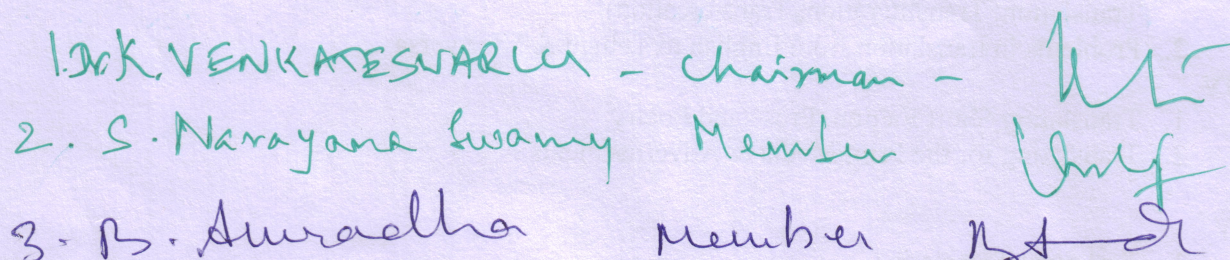 1. Dr. K. VENKATESWARLU - Chairman -
2. S. Narayana Swamy Member
3. B. Anuradha Member